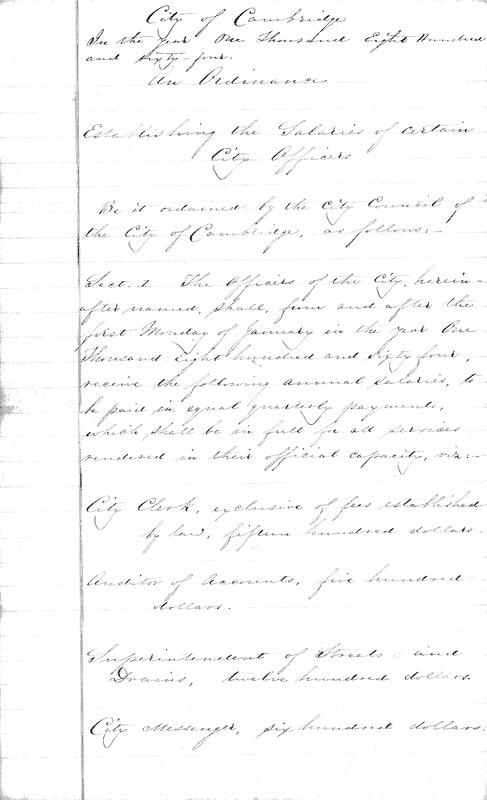 City of Cambridge
In the year One Thousand Eight Hundred
and sixty-four.
An Ordinance
Establishing the Salaries of certain
City Officers
Be it ordained by the City Council of
the City of Cambridge, as follows:-
Sect. 1. The Officers of the City, herein-
after named, shall, from and after the
first Monday of January in the year One
Thousand Eight hundred and sixty four,
receive the following annual salaries, to
be paid in equal quarterly payments,
which shall be in full for all services
rendered in their official capacity, viz:-
City Clerk, exclusive of fees established
by law, fifteen hundred dollars.
Auditor of Accounts, five hundred
dollars.
Superintendent of Streets and
Drains, twelve hundred dollars.
City Messenger, six hundred dollars.